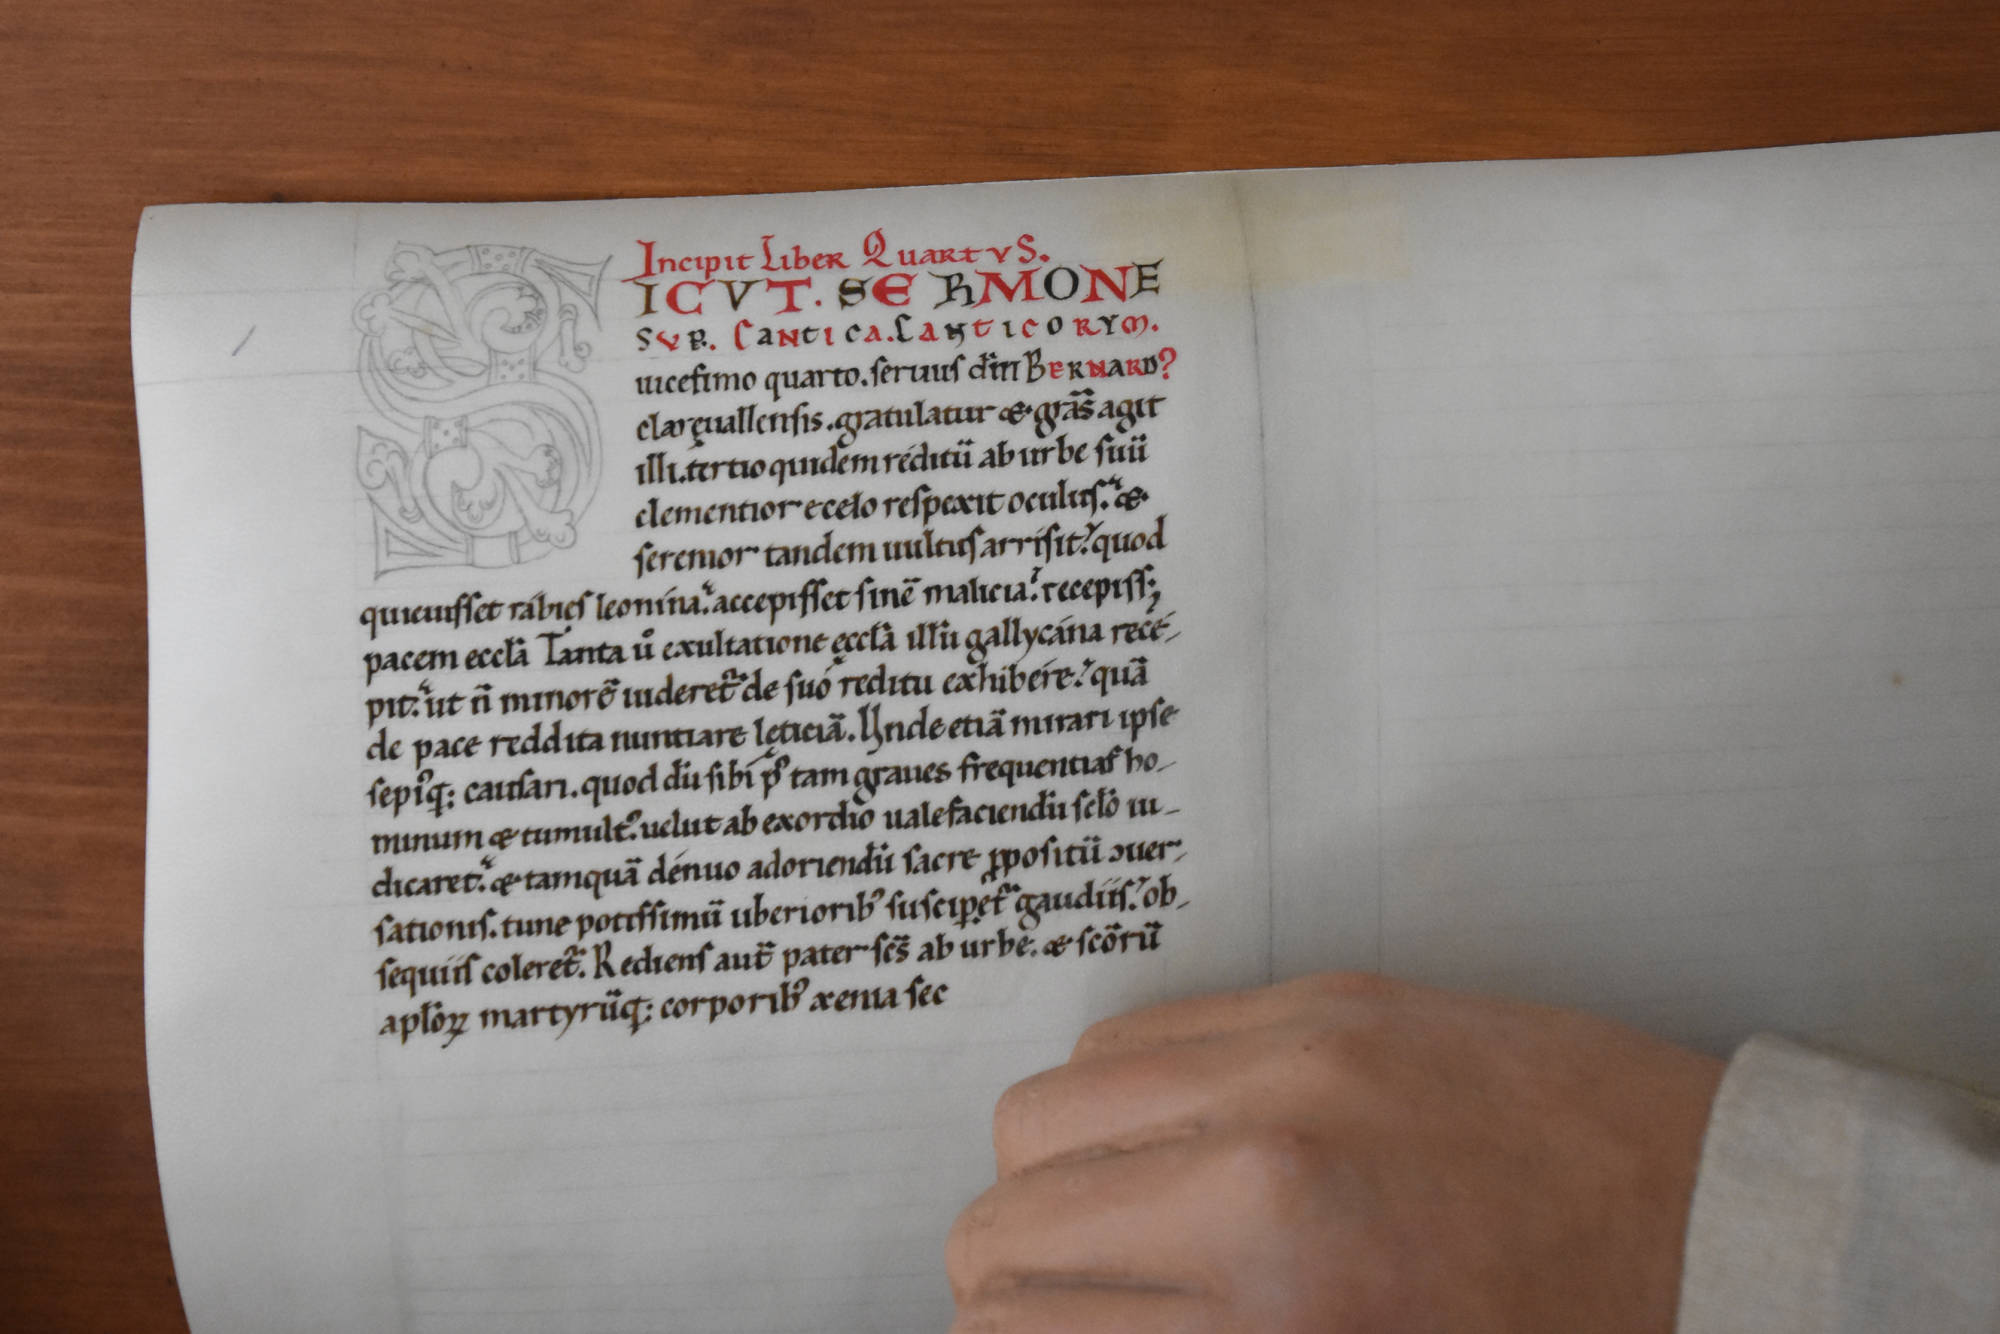 Incipit Liber QuartvS.
ICVT. SERMONE
SVP. CANTICA. CANTICORVM.
uicesimo quarto. seruus dn̄i BERNARD?
claręuallensis. gratulatur & grās agit
illi. tertio quidem réditū ab urbe suū
clementior e celo respexit oculus. &
serenior tandem uultus arrisit. quod
quieuisset rábies leonína. accepisset finē malicia. recepiss;
pacem eccłā Tanta ů exultatione ęcclā illū gallycána recé-
pit. ut n̄ minorē uideret̄ de suó reditu exhibére. quā
de pace reddita nuntiare lęticiā. Unde etiā mirari ipse
sepiꝰq; causari. quod dū sibi pꝰ tam graues frequentias ho-
minum & tumultꝰ. uelut ab exordio ualefaciendū sclō iu-
dicaret. & tamquā dénuo adoriendū sacre ꝓpositū ɔuer-
sationis. tunc potissimū uberioribꝰ suscipet̄ gaudiis. ob-
sequiis coleret̄. Rediens aut̄ pater scs̄ ab urbe. & scōrū
apłoꝝ martyrūq; corporibꝰ xenia sec